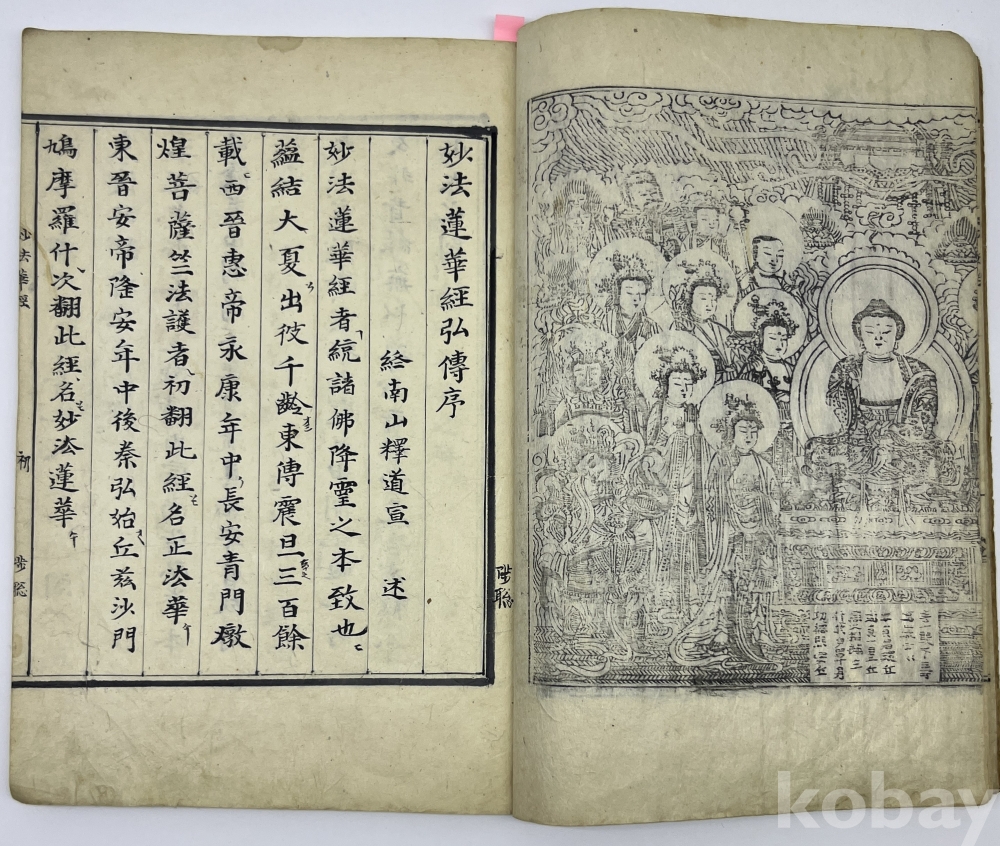 妙法蓮華經弘傳序
終南山釋道宣 述
妙法蓮華經者統諸佛降靈之本致也
蘊結大夏出彼千齡東傳震旦三百餘
載西晉惠帝永康年中長安青門燉
煌菩薩竺法護者初翻此經名正法華
東晉安帝隆安年中後秦弘始丘茲沙門
鳩摩羅什次翻此經名妙法蓮華
妙法華經
kobay